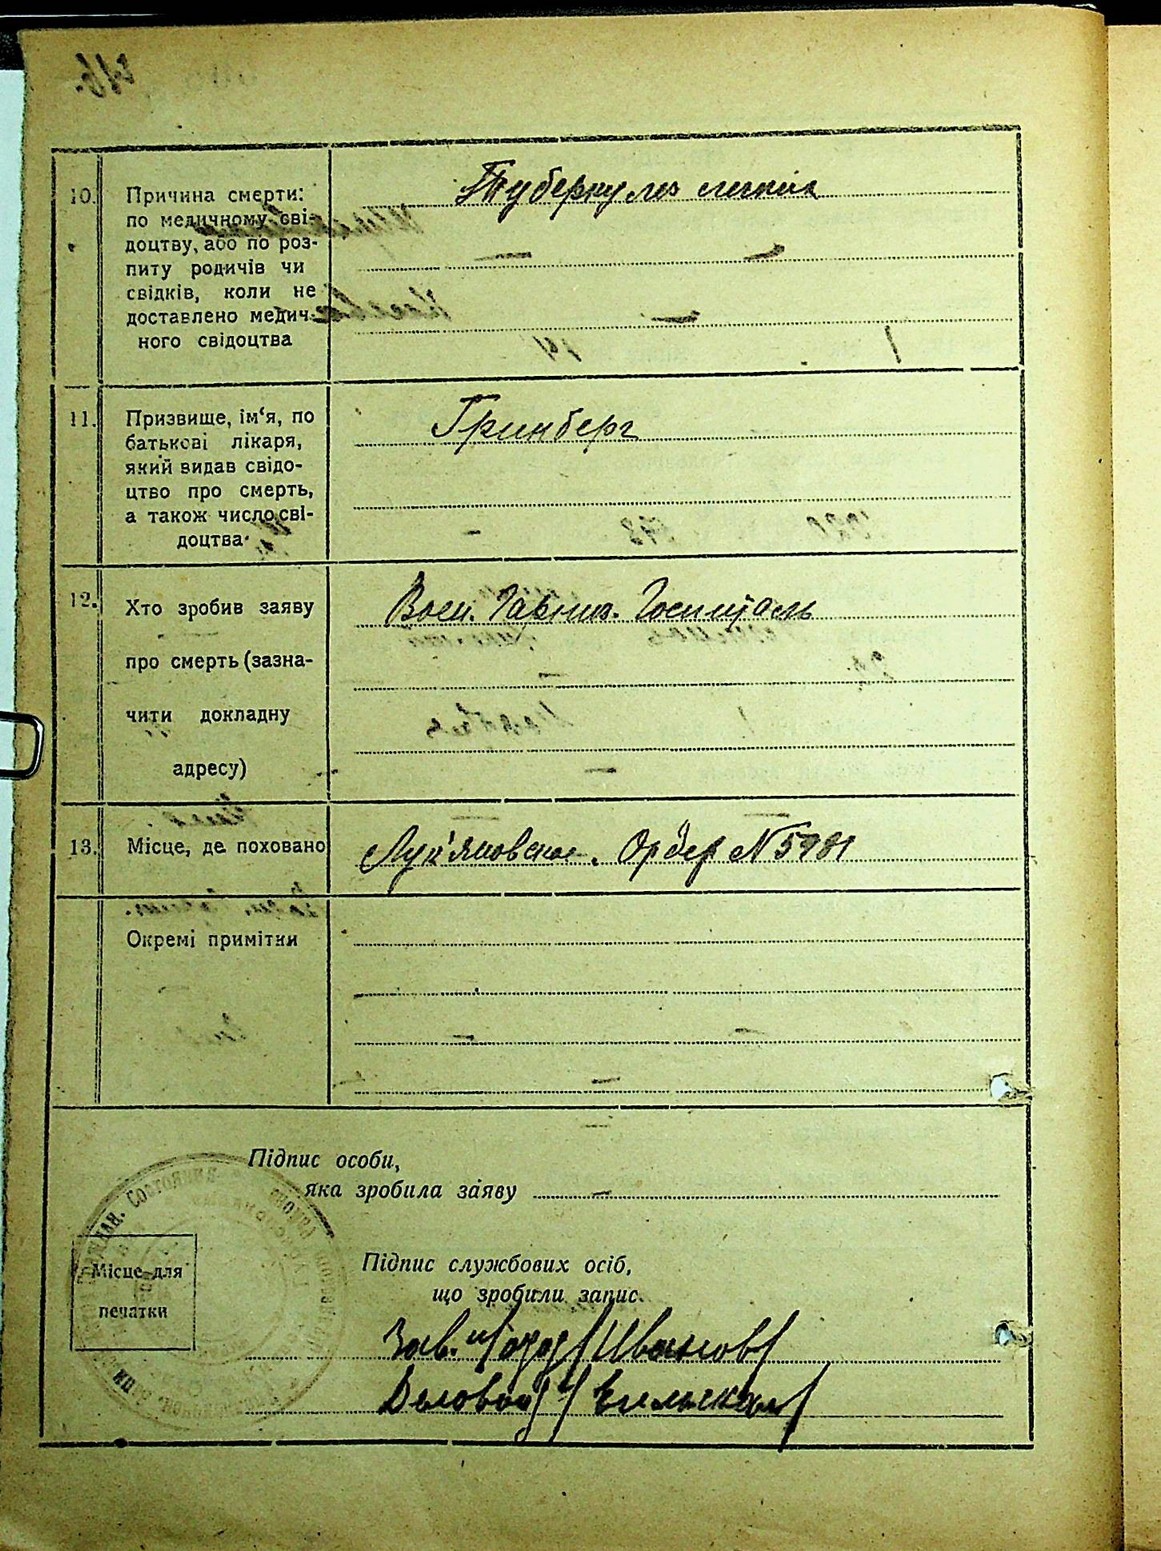 10.
Причина смерти:
по медичному сві-
доцтву, або по роз-
питу родичів чи
свідків, коли не
доставлено медич-
ного свідоцтва
Туберкулез легких
11.
Призвище, ім‘я, по
батькові лікаря,
який видав свідо-
цтво про смерть,
а також число сві-
доцтва
Гринберг
12.
Хто зробив заяву
про смерть (зазна-
чити докладну
адресу)
Воен. Госпиталь
13.
Місце, де поховано
Лук'яновское. Ордер №5981
Окремі примітки
Підпис особи,
яка зробила заяву
Місце для
печатки
Підпис службових осіб,
що зробили запис.
Зав. Иванов
Деловод